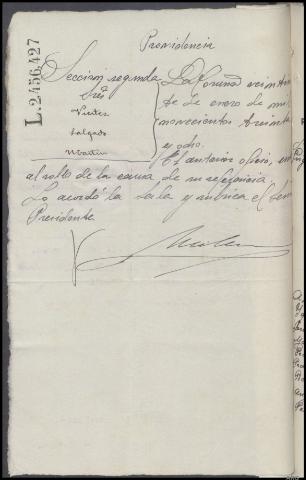 Providencia
L.2456,427
Sección segunda
Sres
Vicites
Salgado
Martin
La Coruña veinti
te de enero de mil
novecientos treinta
y ocho.
El anterior oficio, un
al rollo de la causa de su referencia
Lo acordó la Sala y rubrica el Señor
Presidente